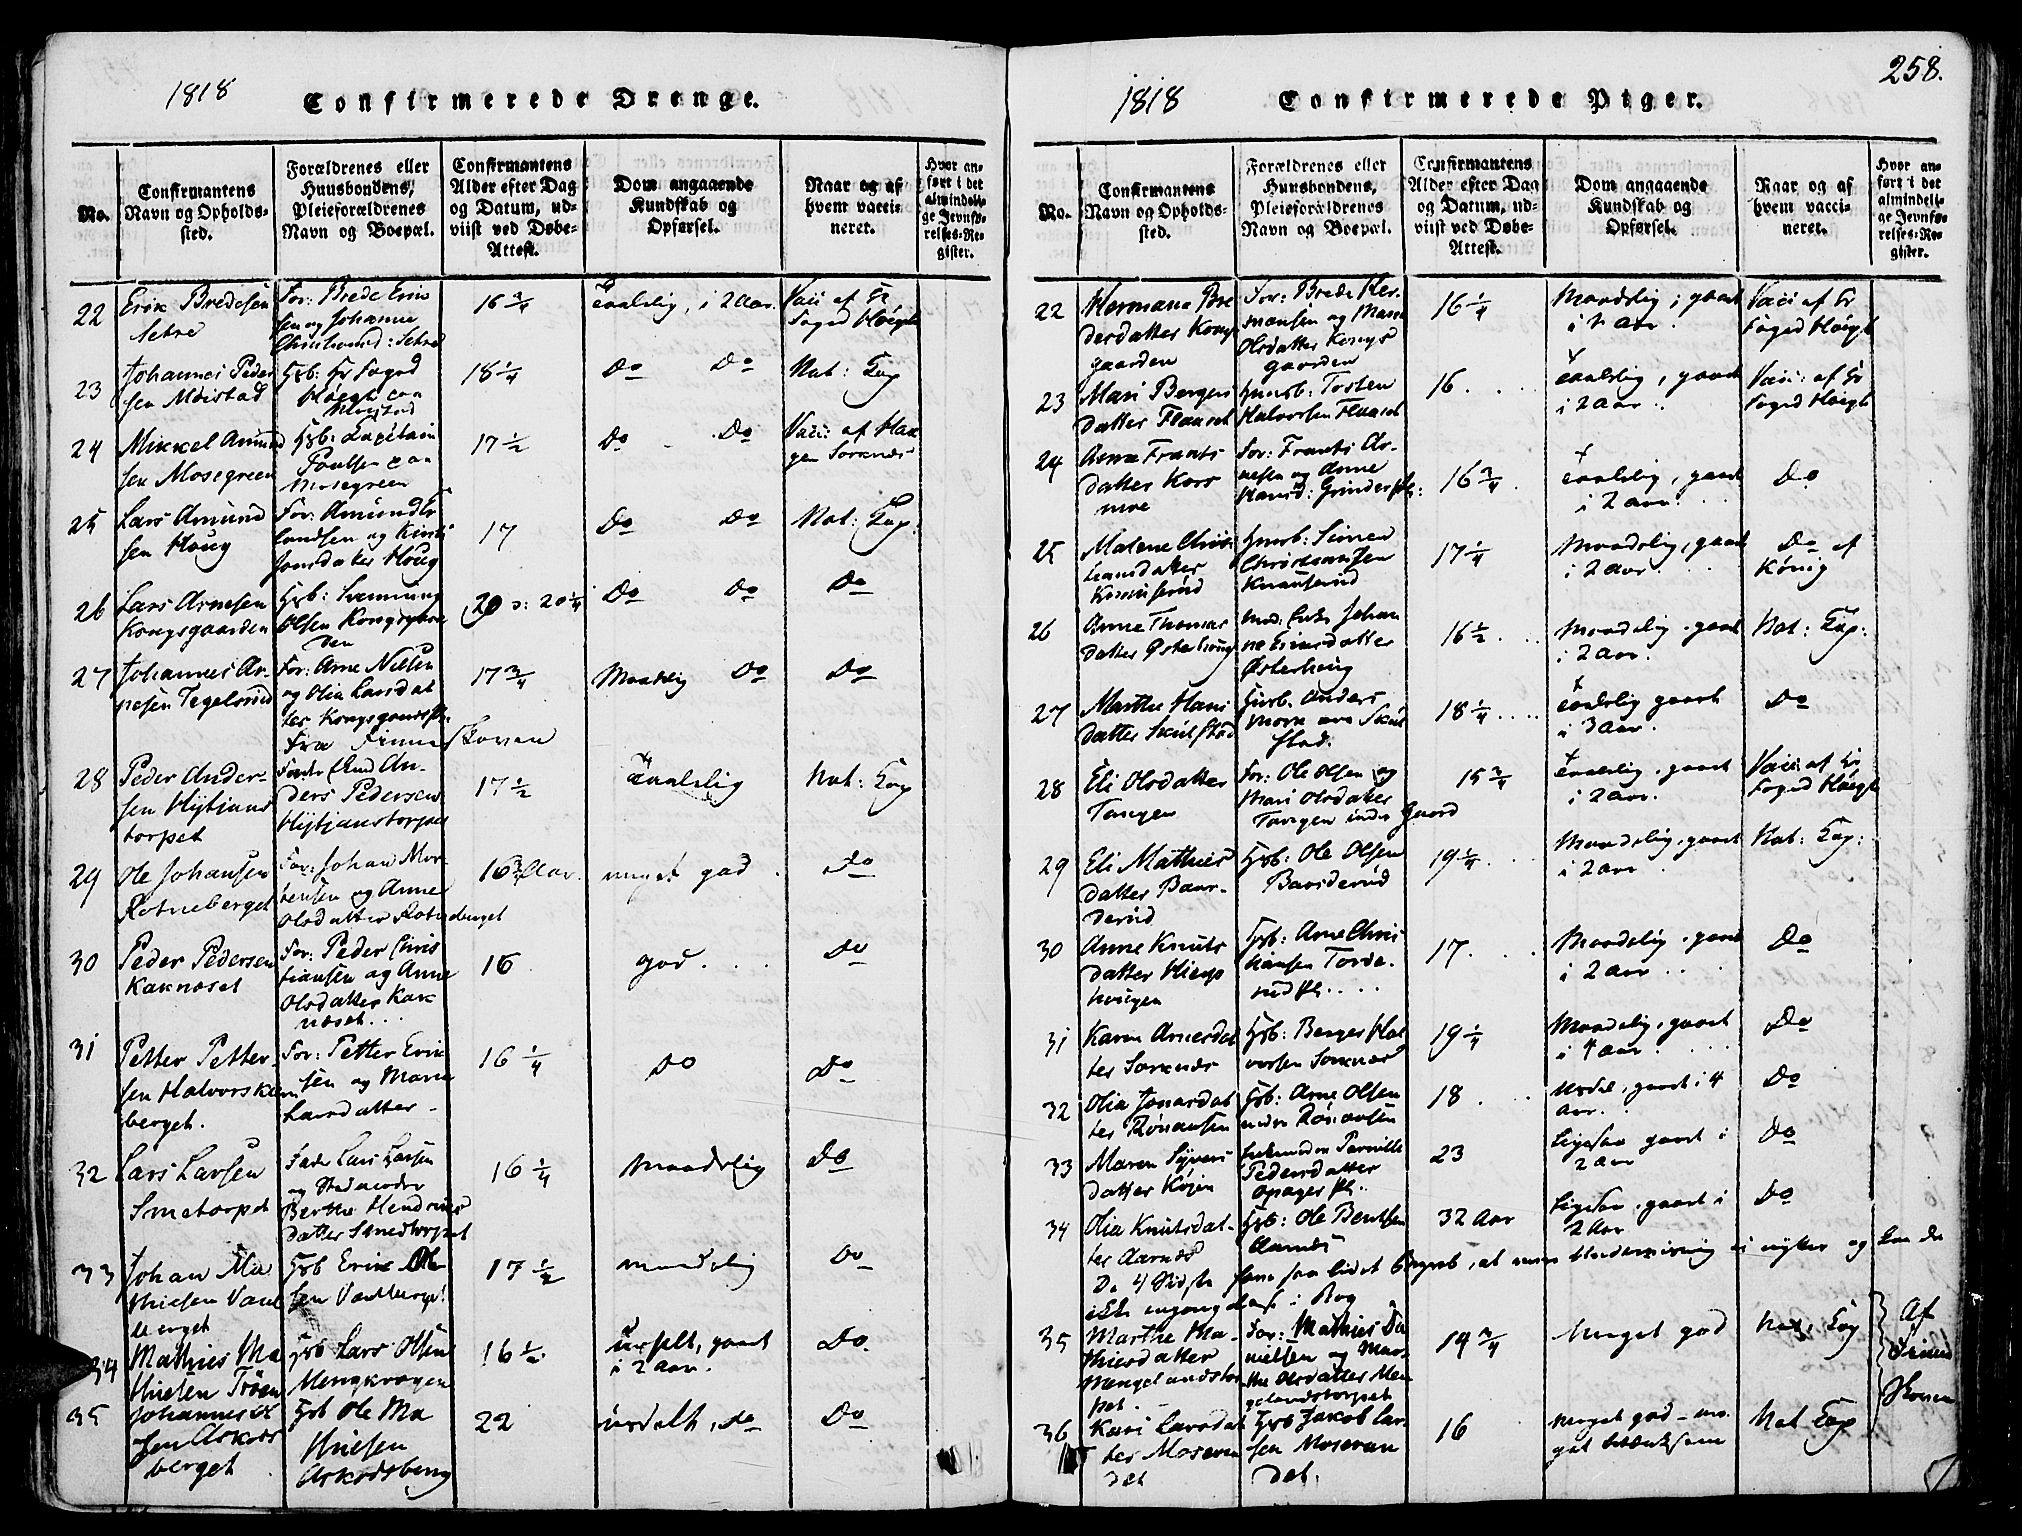 1818 Confirmerede Drenge.
No.
Confirmantens
Navn og Opholds-
sted.
Forældrenes eller
Huusbondens,
Pleieforældrenes
Navn og Boepæl.
Confirmantens
Alder efter Dag
og Datum, ud-
viist ved Døbe-
Attest.
Dom angaaende
Kundskab og
Opførsel.
Naar og af
hvem vacci-
neret.
Hvor an-
ført i det
almindeli-
ge Jevnfø-
relses-Re-
gister.
22
Erik Bredesen
Setre
For: Brede Erik
sen og Johanne
16 3/4
Taalelig, i 2 Aar.
Vaci af Hr
Foged Høigh
23
Johannes Peder
sen Moistad
Hsb: Hr Foged
Høigh paa
Moistad
18 1/4
Do Do
Nat: Kop
24
Mikkel Amund
sen Mosegreen
Hsb: Capitain
Poulsen paa
Mosegreen
17 1/2
Do Do
Vaci: af Haa
gen Sorknæs
25
Lars Amund
sen Houg
For: Amund Er
landsen og Kirsti
Jonsdatter Houg
17
Do Do
Nat: Kop:
26
Lars Arnesen
Kongsgaarden
Hsb: Svenning
Olsen Kongsgaar
den
20 o: 20 1/4
Do Do
Do
27
Johannes Ar-
nesen Tegelsrud
For: Arne Nielsen
og Olia Larsdat
ter Kongsgaards
Fra Finneskoven
17 3/4
Maadelig Do
Do
28
Peder Ander-
sen Hytjans
torpet
An-
ders Pedersen
Hytjanstorpet
17 1/2
Taalelig
Nat: Kop
29
Ole Johansen
Rotneberget
For: Johan Mor-
tensen og Anne
Olsdatter Rotneberget
16 3/4 Aar.
meget god
Do
30
Peder Pedersen
Kaknæset
For: Peder Chris
tiansen og Anne
Olsdatter Kak
næset...
16
god...
Do
31
Petter Petter-
sen Halvorsk
berget.
For: Petter Erik
sen og Marie
Larsdatter -
16 1/4
Do
Do
32
Lars Larsen
Smetorpet
Fader Lars Larsen
og Stedmoder
Berthe Hendrics
datter Smedtorpet
16 1/4
Maadelig
Do
33
Johan Ma
thiesen Vaal
berget
Hsb Erik Ol
sen
17 1/2
maadelig
Do
34
Mathies Ma
thiesen Trøen
Hsb Lars Olsen
Mengkrogen
16 1/2
uselt, gaaet
i 2 Aar.
Do.
35
Johannes
sen Askos
berget
Hsb Ole Ma
thiesen
Askodsberg
22
Do
Do
258.
1818 Confirmerede Piger.
No.
Confirmantens
Navn og Opholds-
sted.
Forældrenes eller
Huusbondens,
Pleieforældrenes
Navn og Boepæl.
Confirmantens
Alder efter Dag
og Datum, ud-
viist ved Døbe-
Attest.
Dom angaaende
Kundskab og
Opførsel.
Naar og af
hvem vacci-
neret.
Hvor an-
ført i det
almindeli-
ge Jevnfø-
relses-Re-
gister.
22
Hermana Bre
desdatter Kong
gaarden
For: Brede Her-
mansen og Mari
Olsdatter Kongs
gaarden
16 1/4
Maadelig, gaaet
i 2 Aar.
Vaci af Hr
Foged Høigh
23
Mari Bergers
datter Flaaset
Huusb: Torsten
Halvorsen Flaaset
16.
Taalelig, gaaet
i 2 Aar..
Vaci: af Hr
Foged Høigh
24
Anne Frants
datter Kors
moe
For: Frants Ar-
nesen og Anne
Hansd: Grinder
16 3/4
Taalelig, gaaet
i 2 Aar.
Do
25
Malene Chris
tiansdatter
Knuserud
Huusb: Simen
Christiansen
Knauserud
17 1/4
Maadelig, gaaet
i 2 Aar.
Do af
König
26
Anne Thomas
datter Østerhoug
Mod: Enke Johan
ne Erichsdatter
Østerhoug
16 1/2
Maadelig, gaaet
i 2 Aar.
Nat: Kop:
27
Marthe Hans
datter Skulstad
Husb. Anders
Moen Skul
stad.
18 1/4
Taalelig gaaet
i 3 Aar.
Do
28
Eli Olsdatter
Tangen
For: Ole Olsen og
Mari Olsdatter
Tangen under Gaard
15 3/4
Taalelig, gaaet
i 2 Aar.
Vaci: af Hr
Foged Høigh
29
Eli Mathies
datter Baar-
derud
Hsb: Ole Olsen
Baarderud
19 1/4
Maadelig, gaaet
i 2 Aar
Nat: Kop:
30
Anne Knuts
datter
Hsb: Arne Chris
tiansen Torde
rud
17
Maadelig, gaaet
i 2 Aar
Do
31
Karen Arnesdat
ter Sorknæs
Hsb: Berger Hal
vorsen Sorknæs
19 1/4
Maadelig, gaaet
i 4 Aar.
Do
32
Olia Jonasdat
ter Rønaasen
Hsb: Arne Olsen
under Rønaasen
18
gaaet i 4
Aar.
Do
33
Maren Syvers
datter Køjen
Pernille
Pedersdatter
Opager
23
Ligesaa gaaet i
2 Aar
Do
34
Olia Knutsdat-
ter Aarnæs
Hsb: Ole Bentsen
Aarnæs
32 Aar
Ligesaa gaaet i
2 Aar
Do
De 4 sidste have saa lidet Begreb, at Underviisning ei nytter og kan de
ikke engang læse i Bog
35
Marthe Ma-
thiesdatter
Mengelandstor
pet.
For: Mathies Da
nielsen og Mar-
the Olsdatter Men
gelandstorpet
14 3/4
Meget god
Nat. Kop
Af
Finne
Skoven
36
Kari Larsdat
ter Moseven
det
Hsb Jacob Lar
sen Moseven
det.
16
Meget god - me
get betænksom
Nat Kop